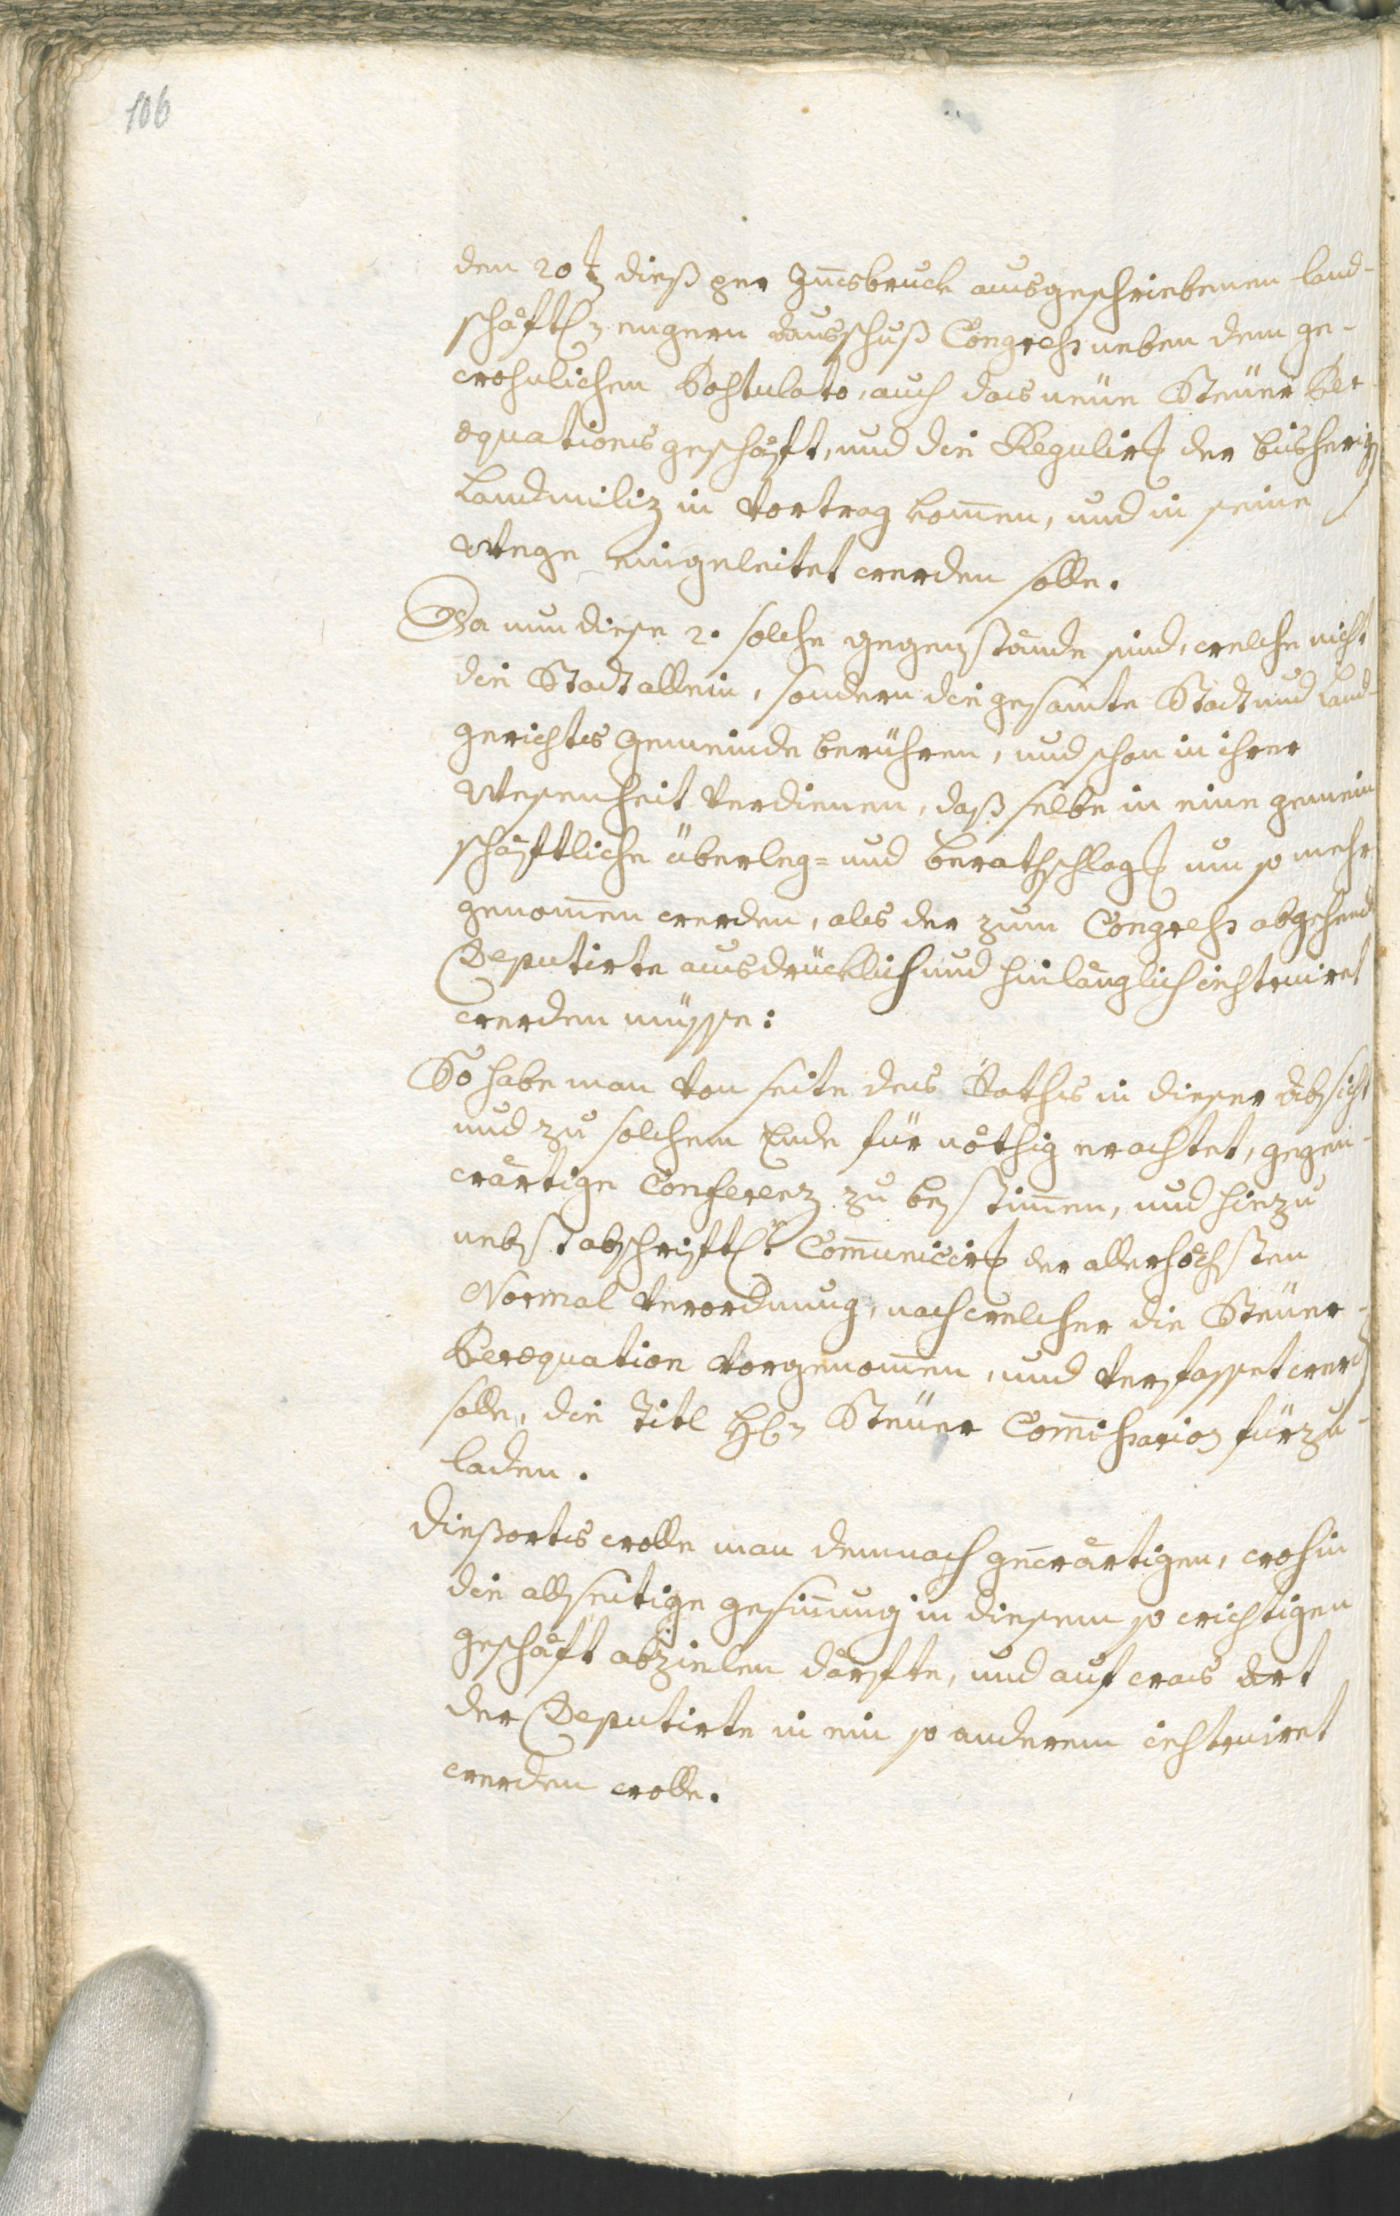 106
den 20t. dieß per Jnnsbruck ausgeschriebenen land-
schäftl: engern Ausschuß Congreß neben dem ge-
wohnlichen Postulato, auch das neue Steuer Per
æquations geschäft, und die Regulirg der bisherig
Landmiliz in Vortrag kom̄en, und in seine
Wege eingeleitet werden solle.
Da nun diese 2. solche gegenstände sind, welche nicht
die Stadt allein, sondern die gesamte Stadt und Land-
gerichts Gemeinde berühren, und schon in ihrer
Wesenheit verdienen, daß selbe in eine gemein
schäftliche überleg= und berathschlagg um so mehr
genom̄en werden, als der zum Congreß abgehende
Deputirte ausdrücklich und hinlänglich instruiret
werden müsse:
So habe man von seite des Raths in dieser Absicht
und zu solchem Ende für nöthig erachtet, gegen-
wärtige Conferenz zu bestim̄en, und hiezu
nebst abschriftl: Com̄unicirg der allerhöchsten
Normal Verordnung, nach welcher die Steuer-
Peræquation vorgenom̄en, und verfasset werd
solle, die Titl H: Steuer Com̄issarien fürzu-
laden.
Dießorts wolle man demnach gewärtigen, wohin
die allseitige gesin̄ung in diesem so wichtigen
geschäft abzielen därfte, und auf was Art
der Deputirte in ein so anderem instruiret
werden wolle.